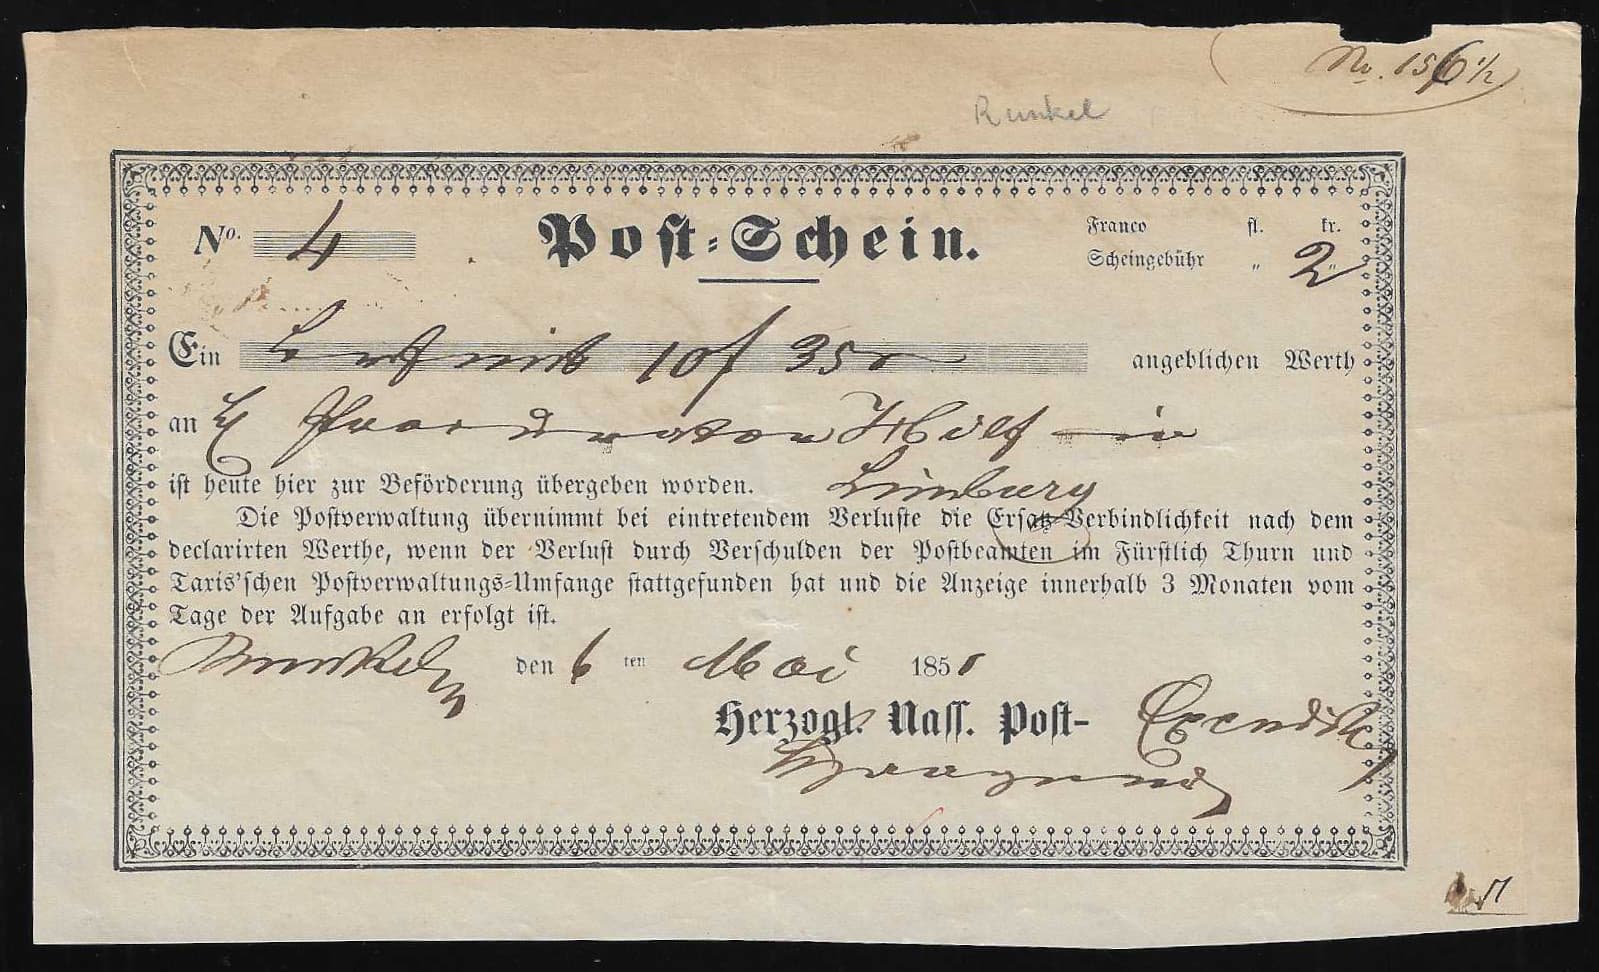 No. 156 1/2
Runkel
No. 4 Post-Schein. Franco fl. kr.
Scheingebühr " 2 "
Ein mit 10 f 35 angeblichen Werth
an Procurator Hilf in
Limburg
ist heute hier zur Beförderung übergeben worden.
Die Postverwaltung übernimmt bei eintretendem Verluste die Ersatz-Verbindlichkeit nach dem
declarirten Werthe, wenn der Verlust durch Verschulden der Postbeamten im Fürstlich Thurn und
Taxis'schen Postverwaltungs-Umfange stattgefunden hat und die Anzeige innerhalb 3 Monaten vom
Tage der Aufgabe an erfolgt ist.
Runkel den 6 ten Mai 1851
Herzogl. Nass. Post-Expedit